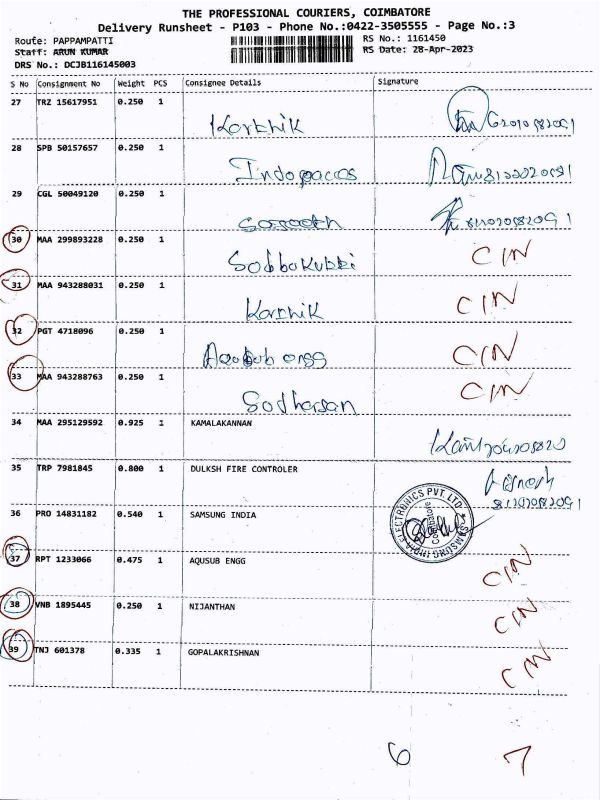 THE PROFESSIONAL COURIERS, COIMBATORE
Delivery Runsheet - P103 - Phone No.:0422-3505555 - Page No.:3
Route: PAPPAMPATTI RS No.: 1161450
Staff: ARUN KUMAR RS Date: 28-Apr-2023
DRS No.: DCJB116145003
S No Consignment No Weight PCS Consignee Details Signature
27 TRZ 15617951 0.250 1
Karthik
28 SPB 50157657 0.250 1
Indopaccs
29 CGL 50049120 0.250 1
30 MAA 299893228 0.250 1 CIN
31 MAA 943288031 0.250 1 CIN
Karthik
32 PGT 4718096 0.250 1 CIN
33 MAA 943288763 0.250 1 CIN
34 MAA 295129592 0.925 1 KAMALAKANNAN
35 TRP 7981845 0.800 1 DULKSH FIRE CONTROLER
36 PRO 14831182 0.540 1 SAMSUNG INDIA
SAMSUNG INDIA ELECTRONICS PVT. LTD.
37 RPT 1233066 0.475 1 AQUSUB ENGG CIN
38 VNB 1895445 0.250 1 NIJANTHAN CIN
39 TNJ 601378 0.335 1 GOPALAKRISHNAN CIN
6 7